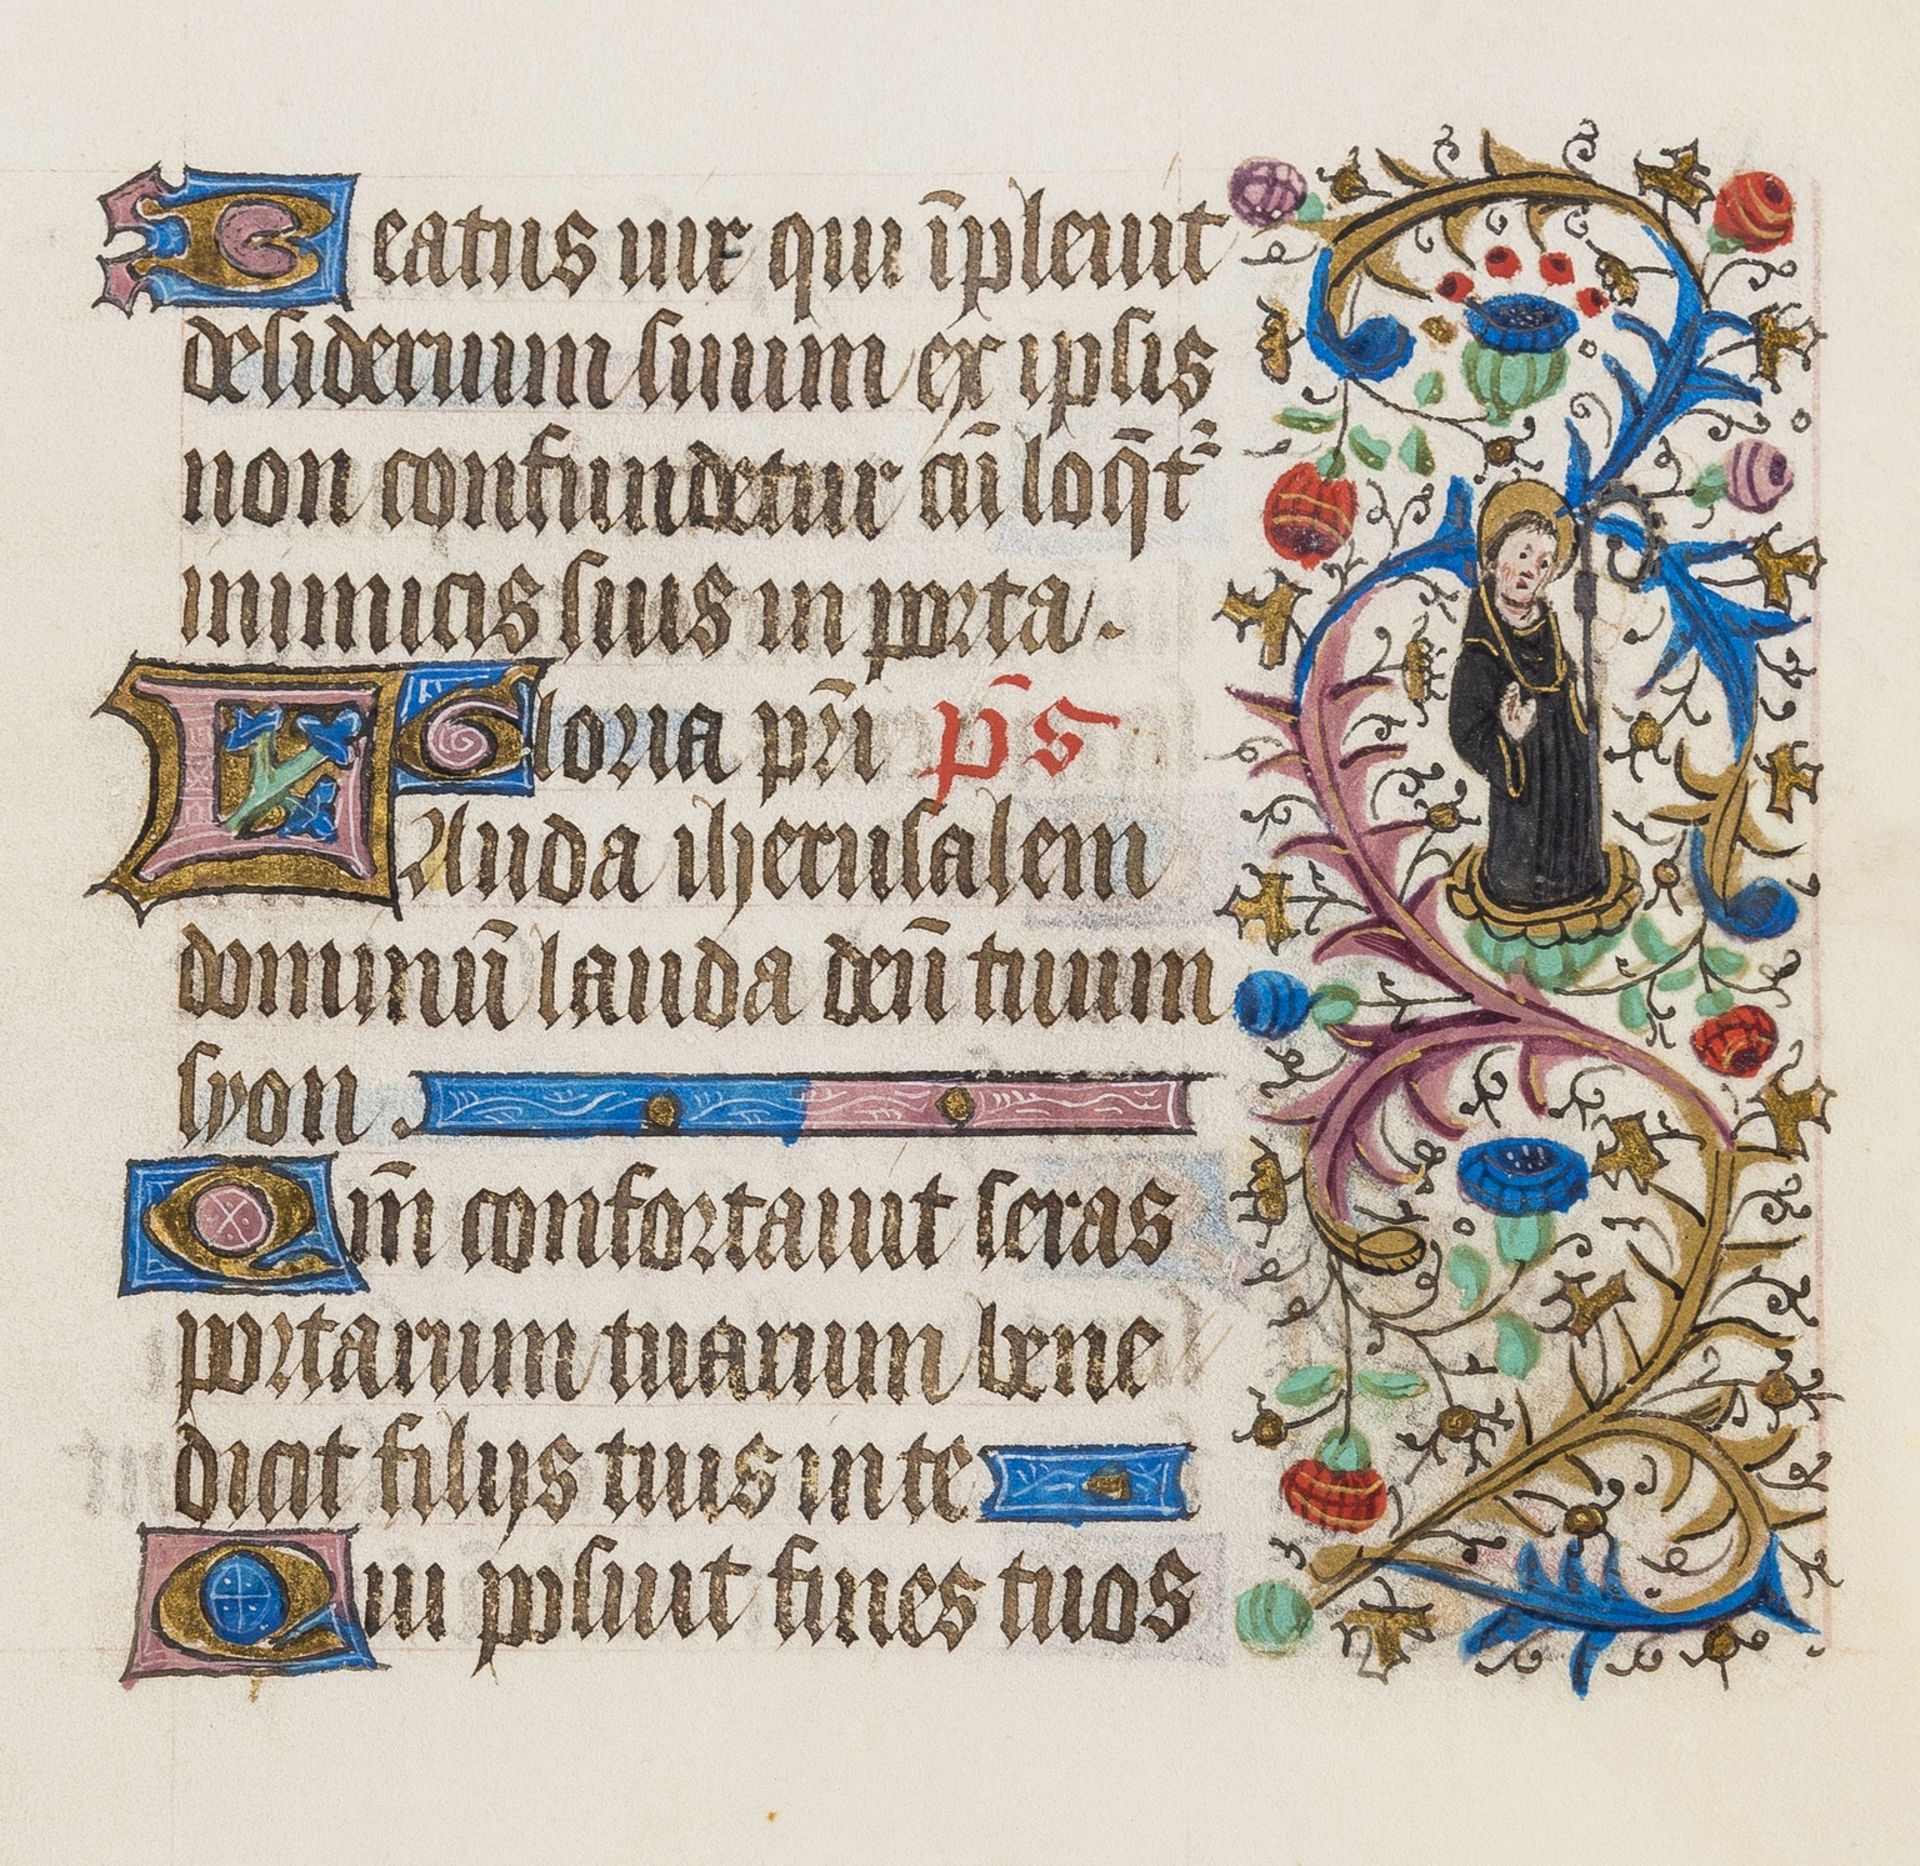 Beatus uir qui īpleuit
desiderium suum ex ipsis
non confundetur cū loq̄t᷑
inimicis suis in porta.
Gloria pr̄i p̄s
Lauda iherusalem
dominū lauda deū tuum
syon.
Qm̄ confortauit seras
portarum tuarum bene
dicit filijs tuis in te
Qui posuit fines tuos